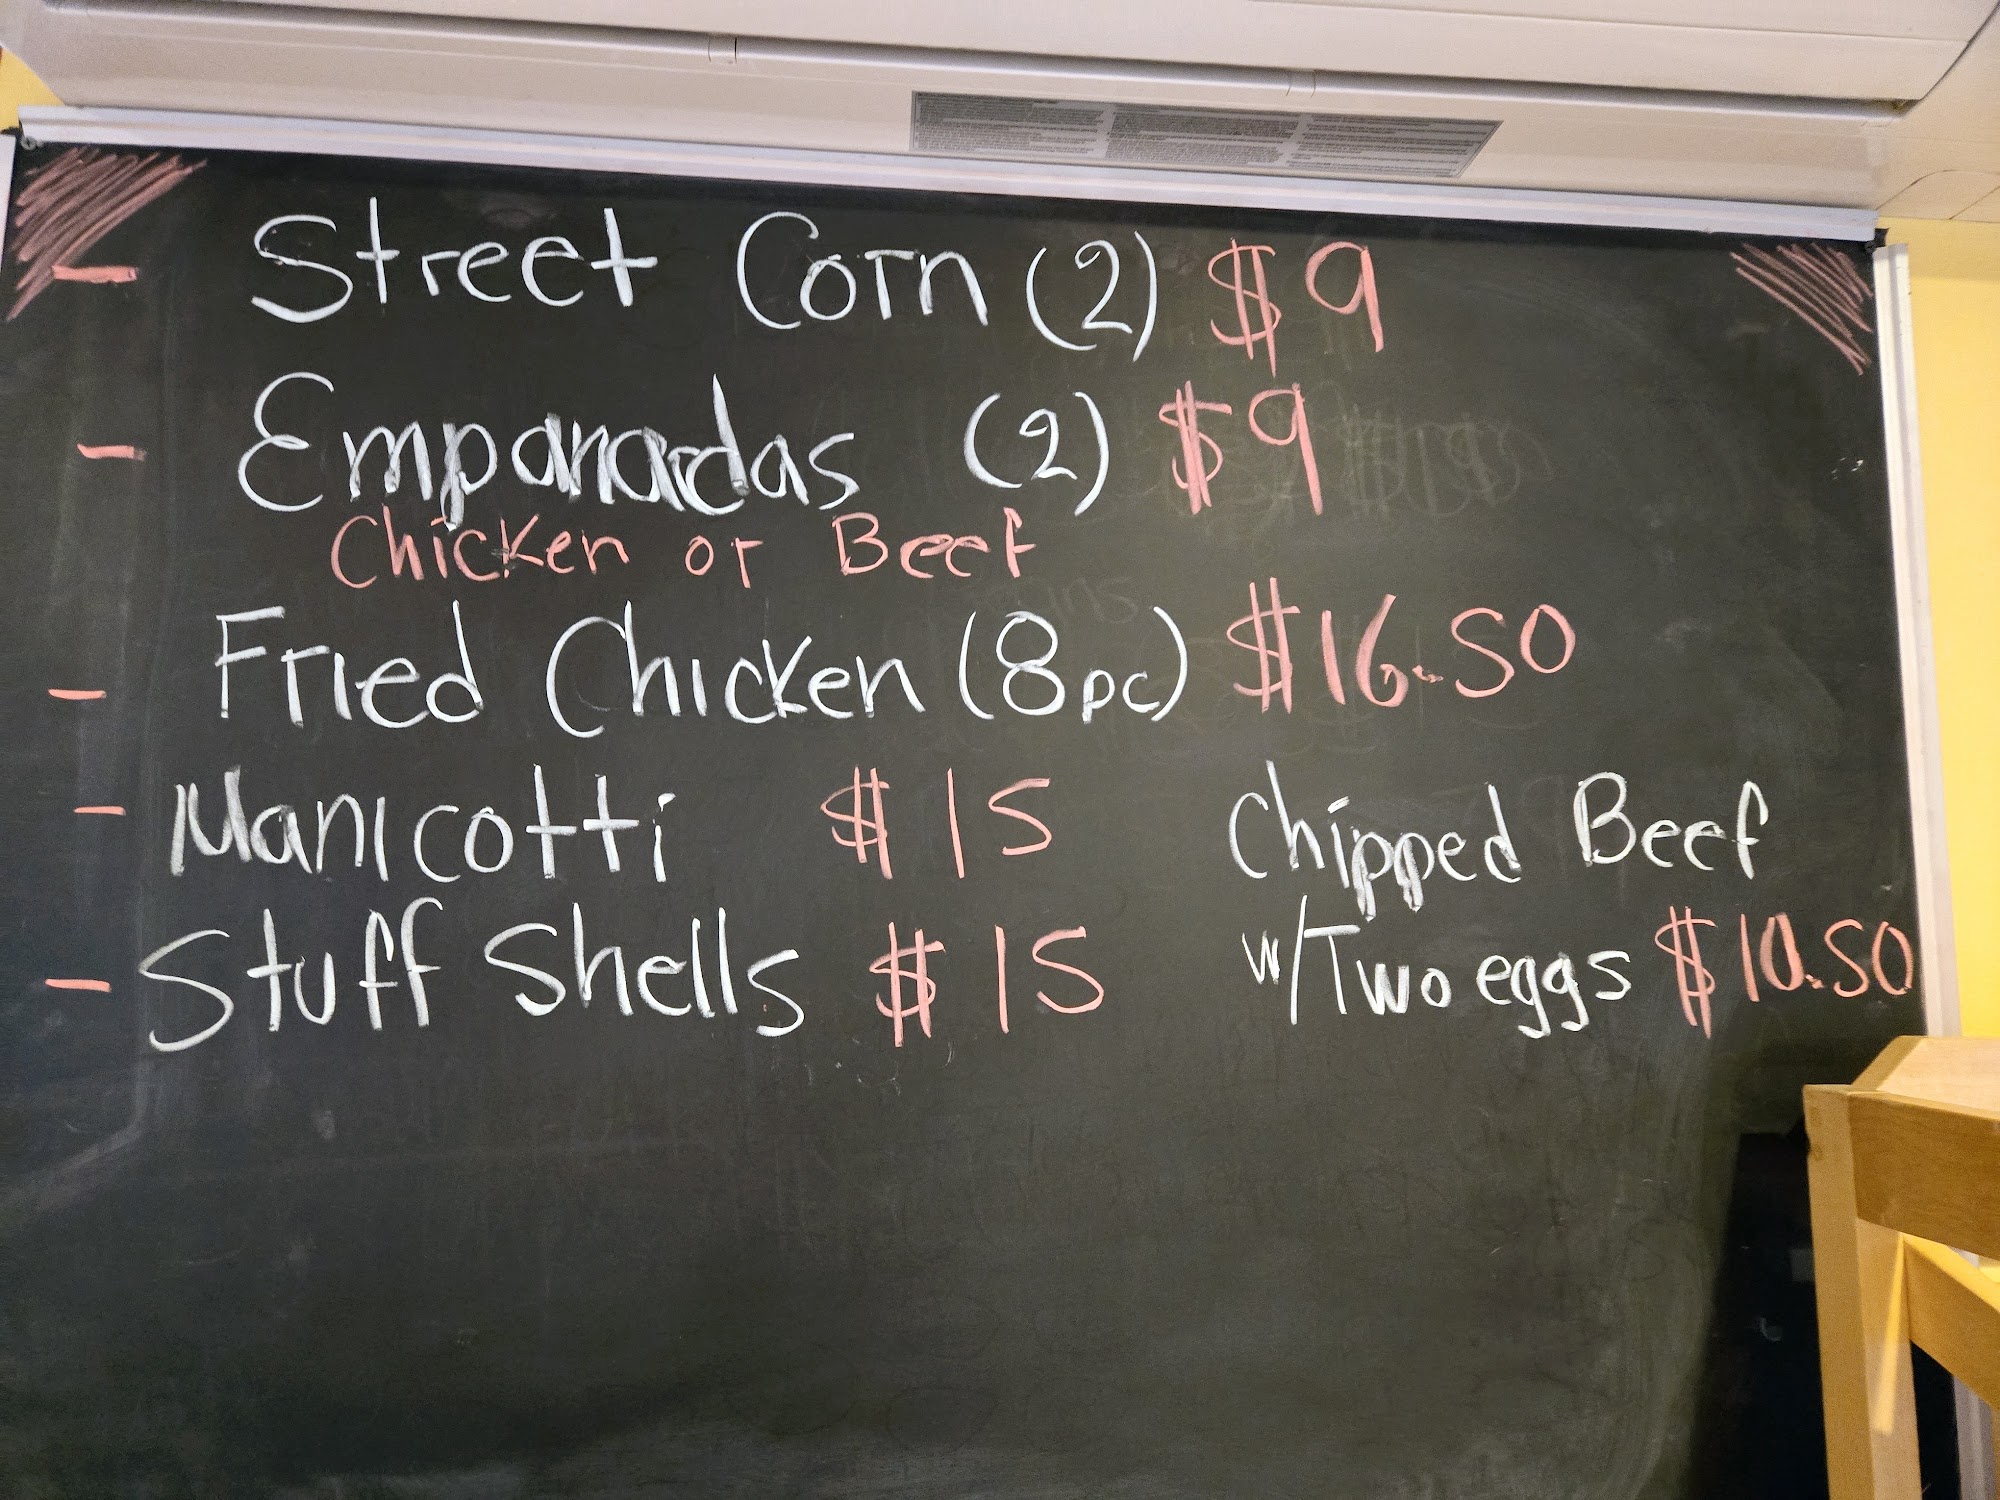 - Street Corn (2) $9
- Empanadas (2) $9
Chicken or Beef
- Fried Chicken (8pc) $16.50
- Manicotti $15
- Stuff Shells $15
Chipped Beef
w/Two eggs $10.50